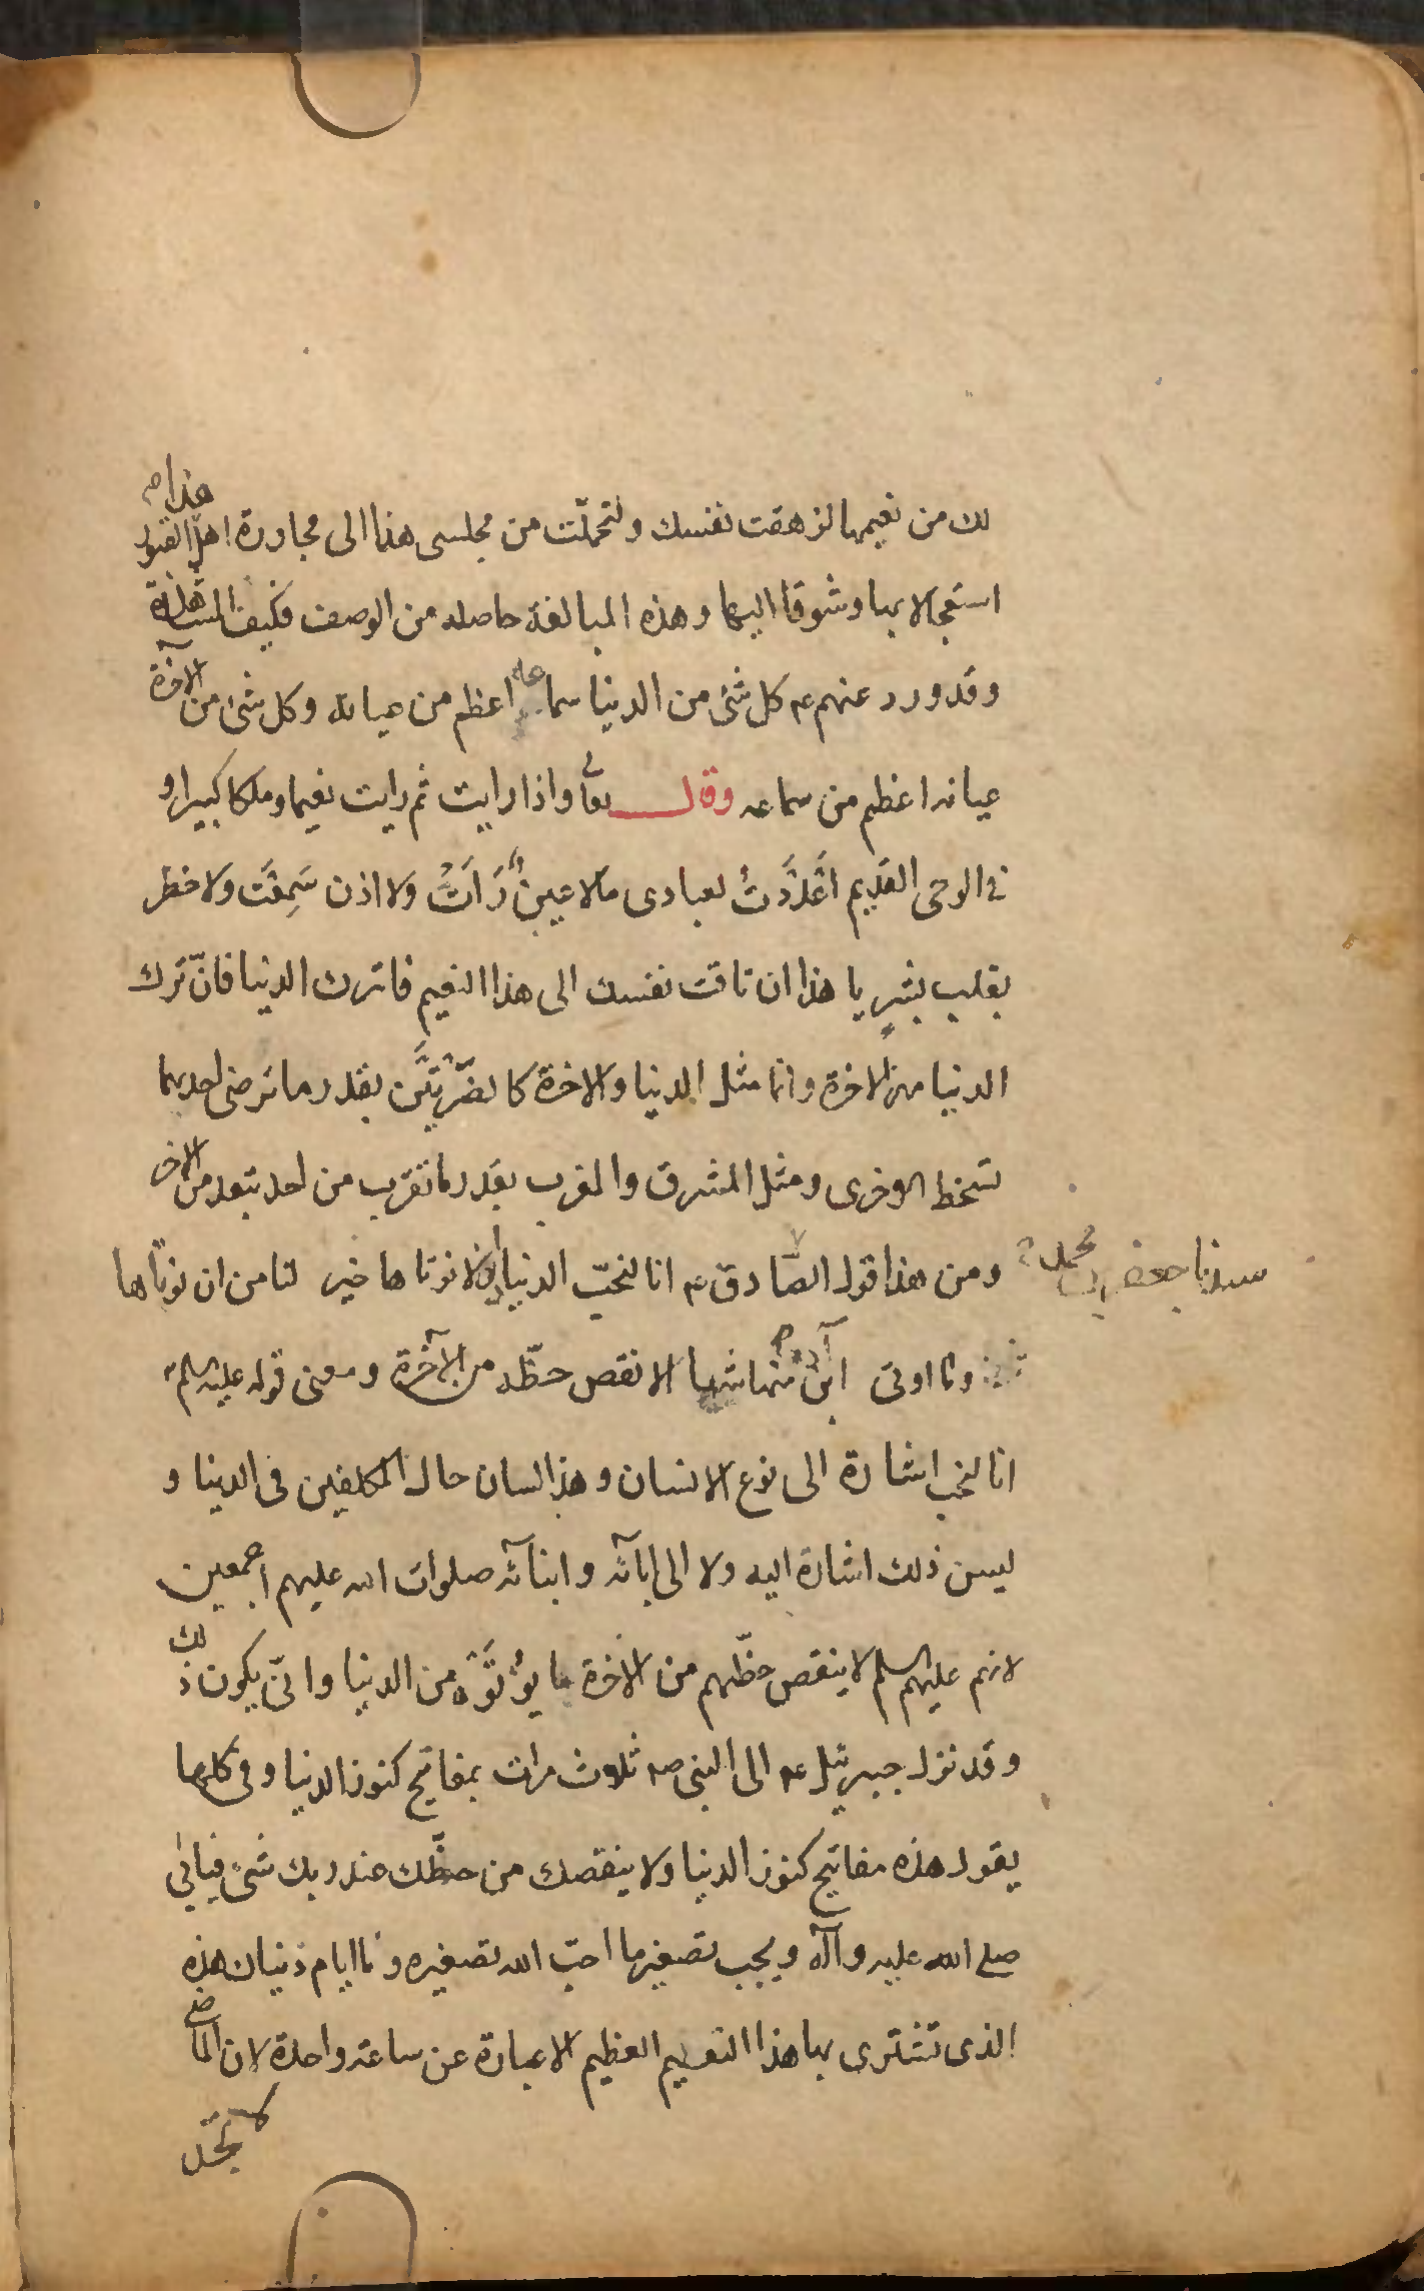 لك من نعيمها لزهقت نفسك ولتحملّت من مجلسى هذا الى مجاورة اهل القبور
هذا م
استعجالا بها وشوقا اليها وهذه المبالغة حاصله من الوصف فكيف المشاهدة
وقد ورد عنهم ع كل شئ من الدنيا سماعه اعظم من عيانه وكل شئ من الآخرة
عيانه اعظم من سماعه وقال تعا واذا رايت ثم رايت نعيما وملكا كبيرا و
فى الوحى القديم اَعْدَدْتُ لعبادى مالا عينٌ رَاَتْ ولا اذن سَمِعَتْ ولا خطر
بقلب بشرٍ يا هذا ان تاقت نفسك الى هذا النعيم فاترك الدنيا فانّ ترك
الدنيا مهر الاخرة وانما مثل الدنيا والاخرة كالضرّتَيْن بقدر ما ترضى احديهما
تسخط الاخرى ومثل المشرق والمغرب بقدر ما تقرب من احد تبعد من الاخر
ومن هذا قول الصّادق ع انا لنحبّ الدنيا وان لا نوتاها خير لنا من ان نوتاها
سيدنا جعفر بن محمد ع
وما اوتى ابن آدم منها شيا الا نقص حظّه من الآخرة ومعنى قوله عليه السلم
انا لنحب اشارة الى نوع الانسان وهذا لسان حال المكلفين فى الدنيا و
ليس ذلك اشارة اليه ولا الى ابآئه وابنآئه صلوات الله عليهم اجمعين
لانهم عليهم السلم لا ينقص حظّهم من الاخرة ما يُؤْتَوْه من الدنيا وانّى يكون ذلك
وقد نزل جبرئيل ع الى النبى ص ثلاث مرات بمفاتيح كنوز الدنيا وفى كلها
يقول هذه مفاتيح كنوز الدنيا ولا ينقصك من حظّك عند ربك شئ فيابى
صلى الله عليه وآله ويحب تصغير ما احبّ الله تصغيره وما ايام دنياك هذه
الذى تشترى بها هذا النعيم العظيم الا عبارة عن ساعة واحدة لان الماضى
لا تجد